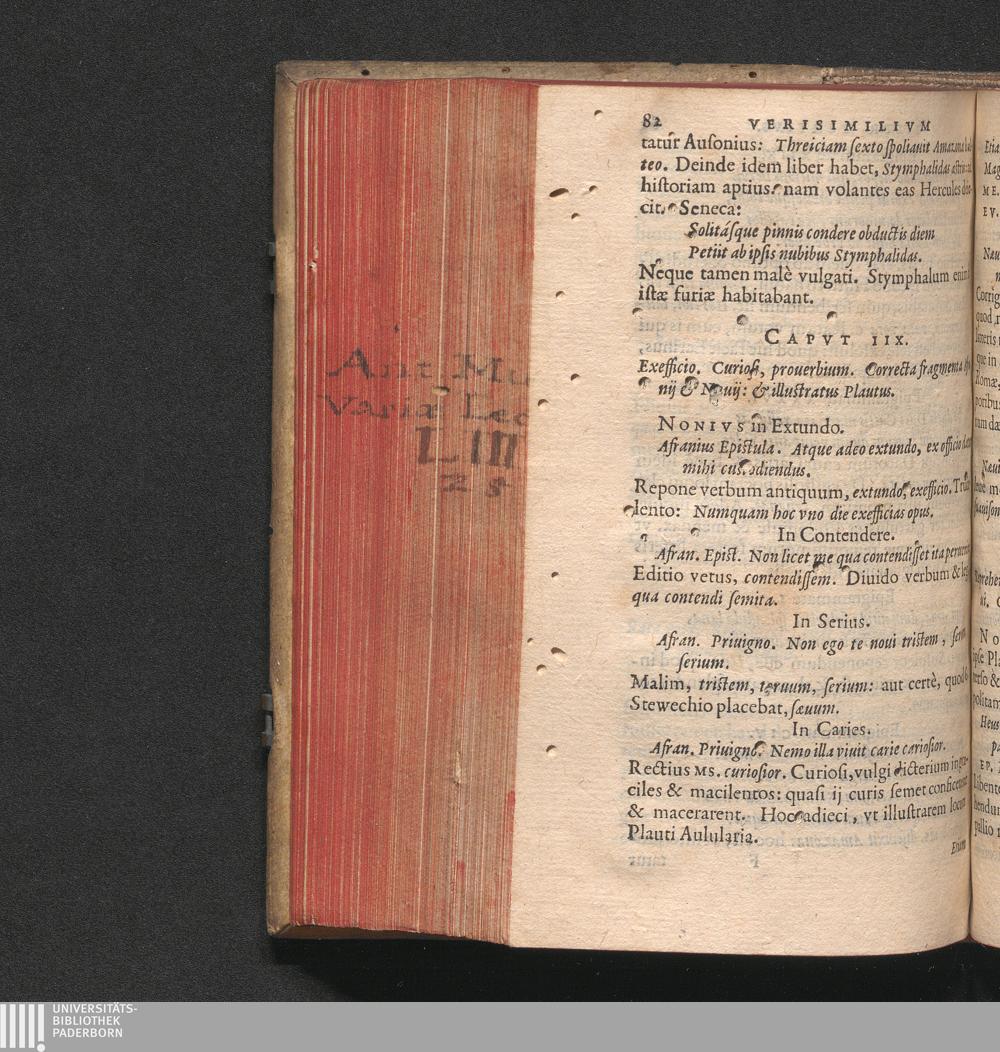 Ant Mu
Variæ Lec
L III
25
82 VERISIMILIVM
tatur Auſonius: Threiciam ſexto ſpoliauit Amazona
teo. Deinde idem liber habet, Stymphalidas
hiſtoriam aptius: nam volantes eas Hercules
cit. Seneca:
Solitáſque pinnis condere obductis diem
Petiit ab ipſis nubibus Stymphalidas.
Neque tamen malè vulgati. Stymphalum enim
iſtæ furiæ habitabant.
CAPVT IIX.
Exefficio. Curioſi, prouerbium. Correcta fragmenta
nij & Næuij: & illuſtratus Plautus.
NONIVS in Extundo.
Afranius Epiſtula. Atque adeo extundo, ex officio
mihi cuſtodiendus.
Repone verbum antiquum, extundo, exefficio.
lento: Numquam hoc vno die exefficias opus.
In Contendere.
Afran. Epiſt. Non licet me qua contendiſſet ita
Editio vetus, contendiſſem. Diuido verbum &
qua contendi ſemita.
In Serius.
Afran. Priuigno. Non ego te noui triſtem,
ſerium.
Malim, triſtem, toruum, ſerium: aut certè, quod
Stewechio placebat, ſæuum.
In Caries.
Afran. Priuigno. Nemo illa viuit carie carioſior.
Rectius MS. curioſior. Curioſi, vulgi dicterium in
ciles & macilentos: quaſi ij curis ſemet
& macerarent. Hoc adieci, vt illuſtrarem locum
Plauti Aulularia.
Etia
Mag
ME.
EV.
Næu
Corrig
quod
que in
Romæ,
poribu
Næui
NO
Heus
pa
EP.
UNIVERSITÄTS-
BIBLIOTHEK
PADERBORN